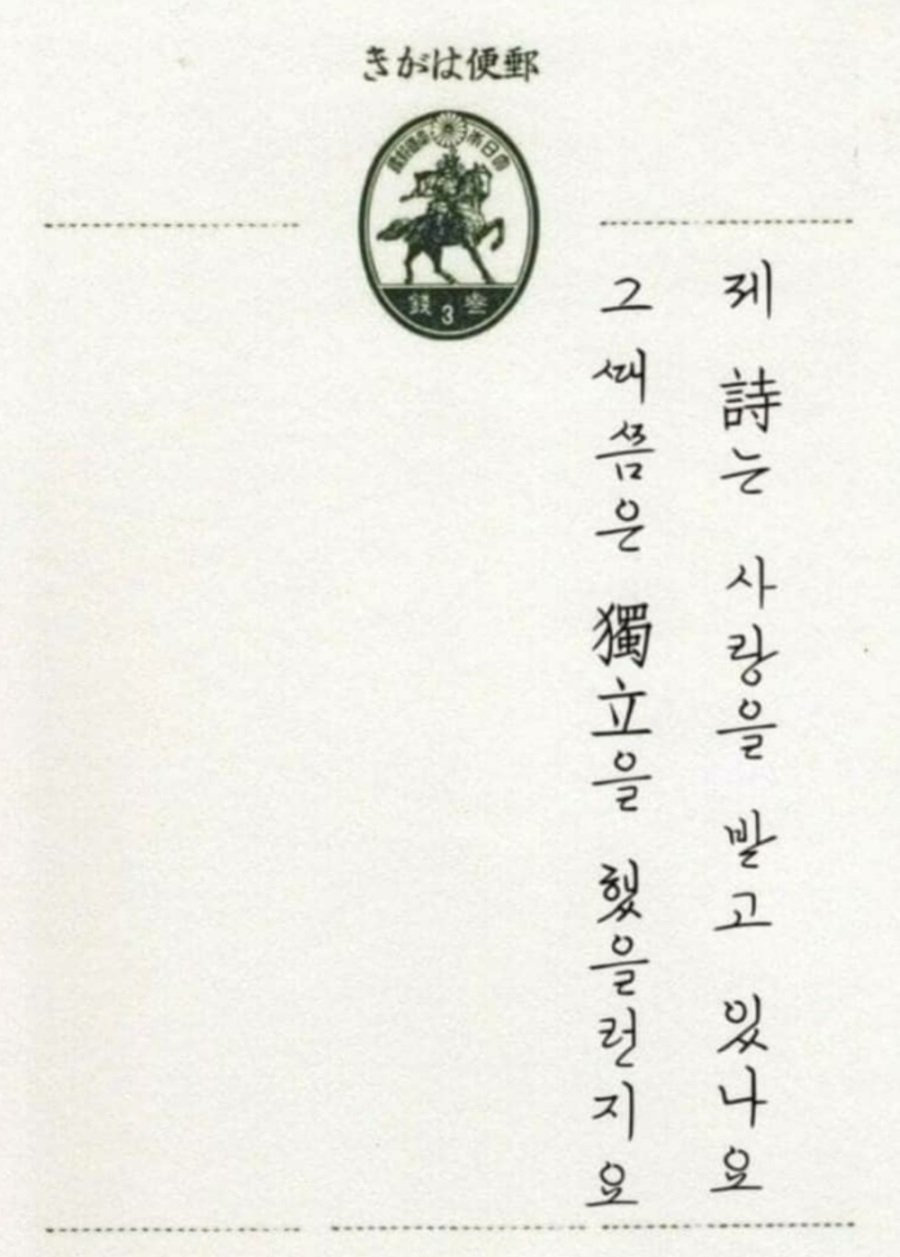 きがは便郵
國日本大
錢3叁
제 詩는 사랑을 받고 있나요
그 때쯤은 獨立을 했을런지요